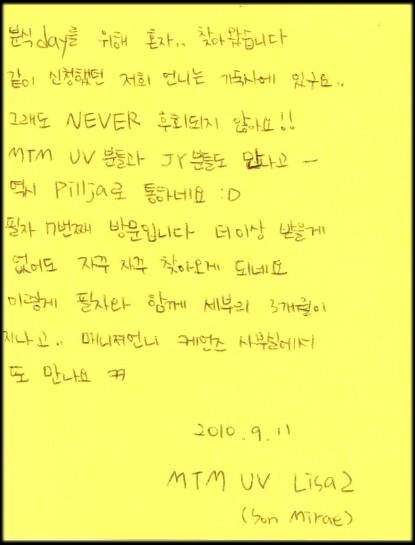 분식day를 위해 혼자.. 찾아왔습니다
같이 신청했던 저희 언니는 기숙사에 있구요..
그래도 NEVER 후회되지 않아요!!
MTM UV 분들과 JY분들도 만나고 –
역시 Pillja로 통하네요 :D
필자 7번째 방문입니다 더이상 받을게
없어도 자꾸 자꾸 찾아오게 되네요
이렇게 필자와 함께 세부의 3개월이
지나고.. 매니져언니 케언즈 사무실에서
또 만나요 ㅋㅋ
2010.9.11
MTM UV Lisa2
(Son Mirae)